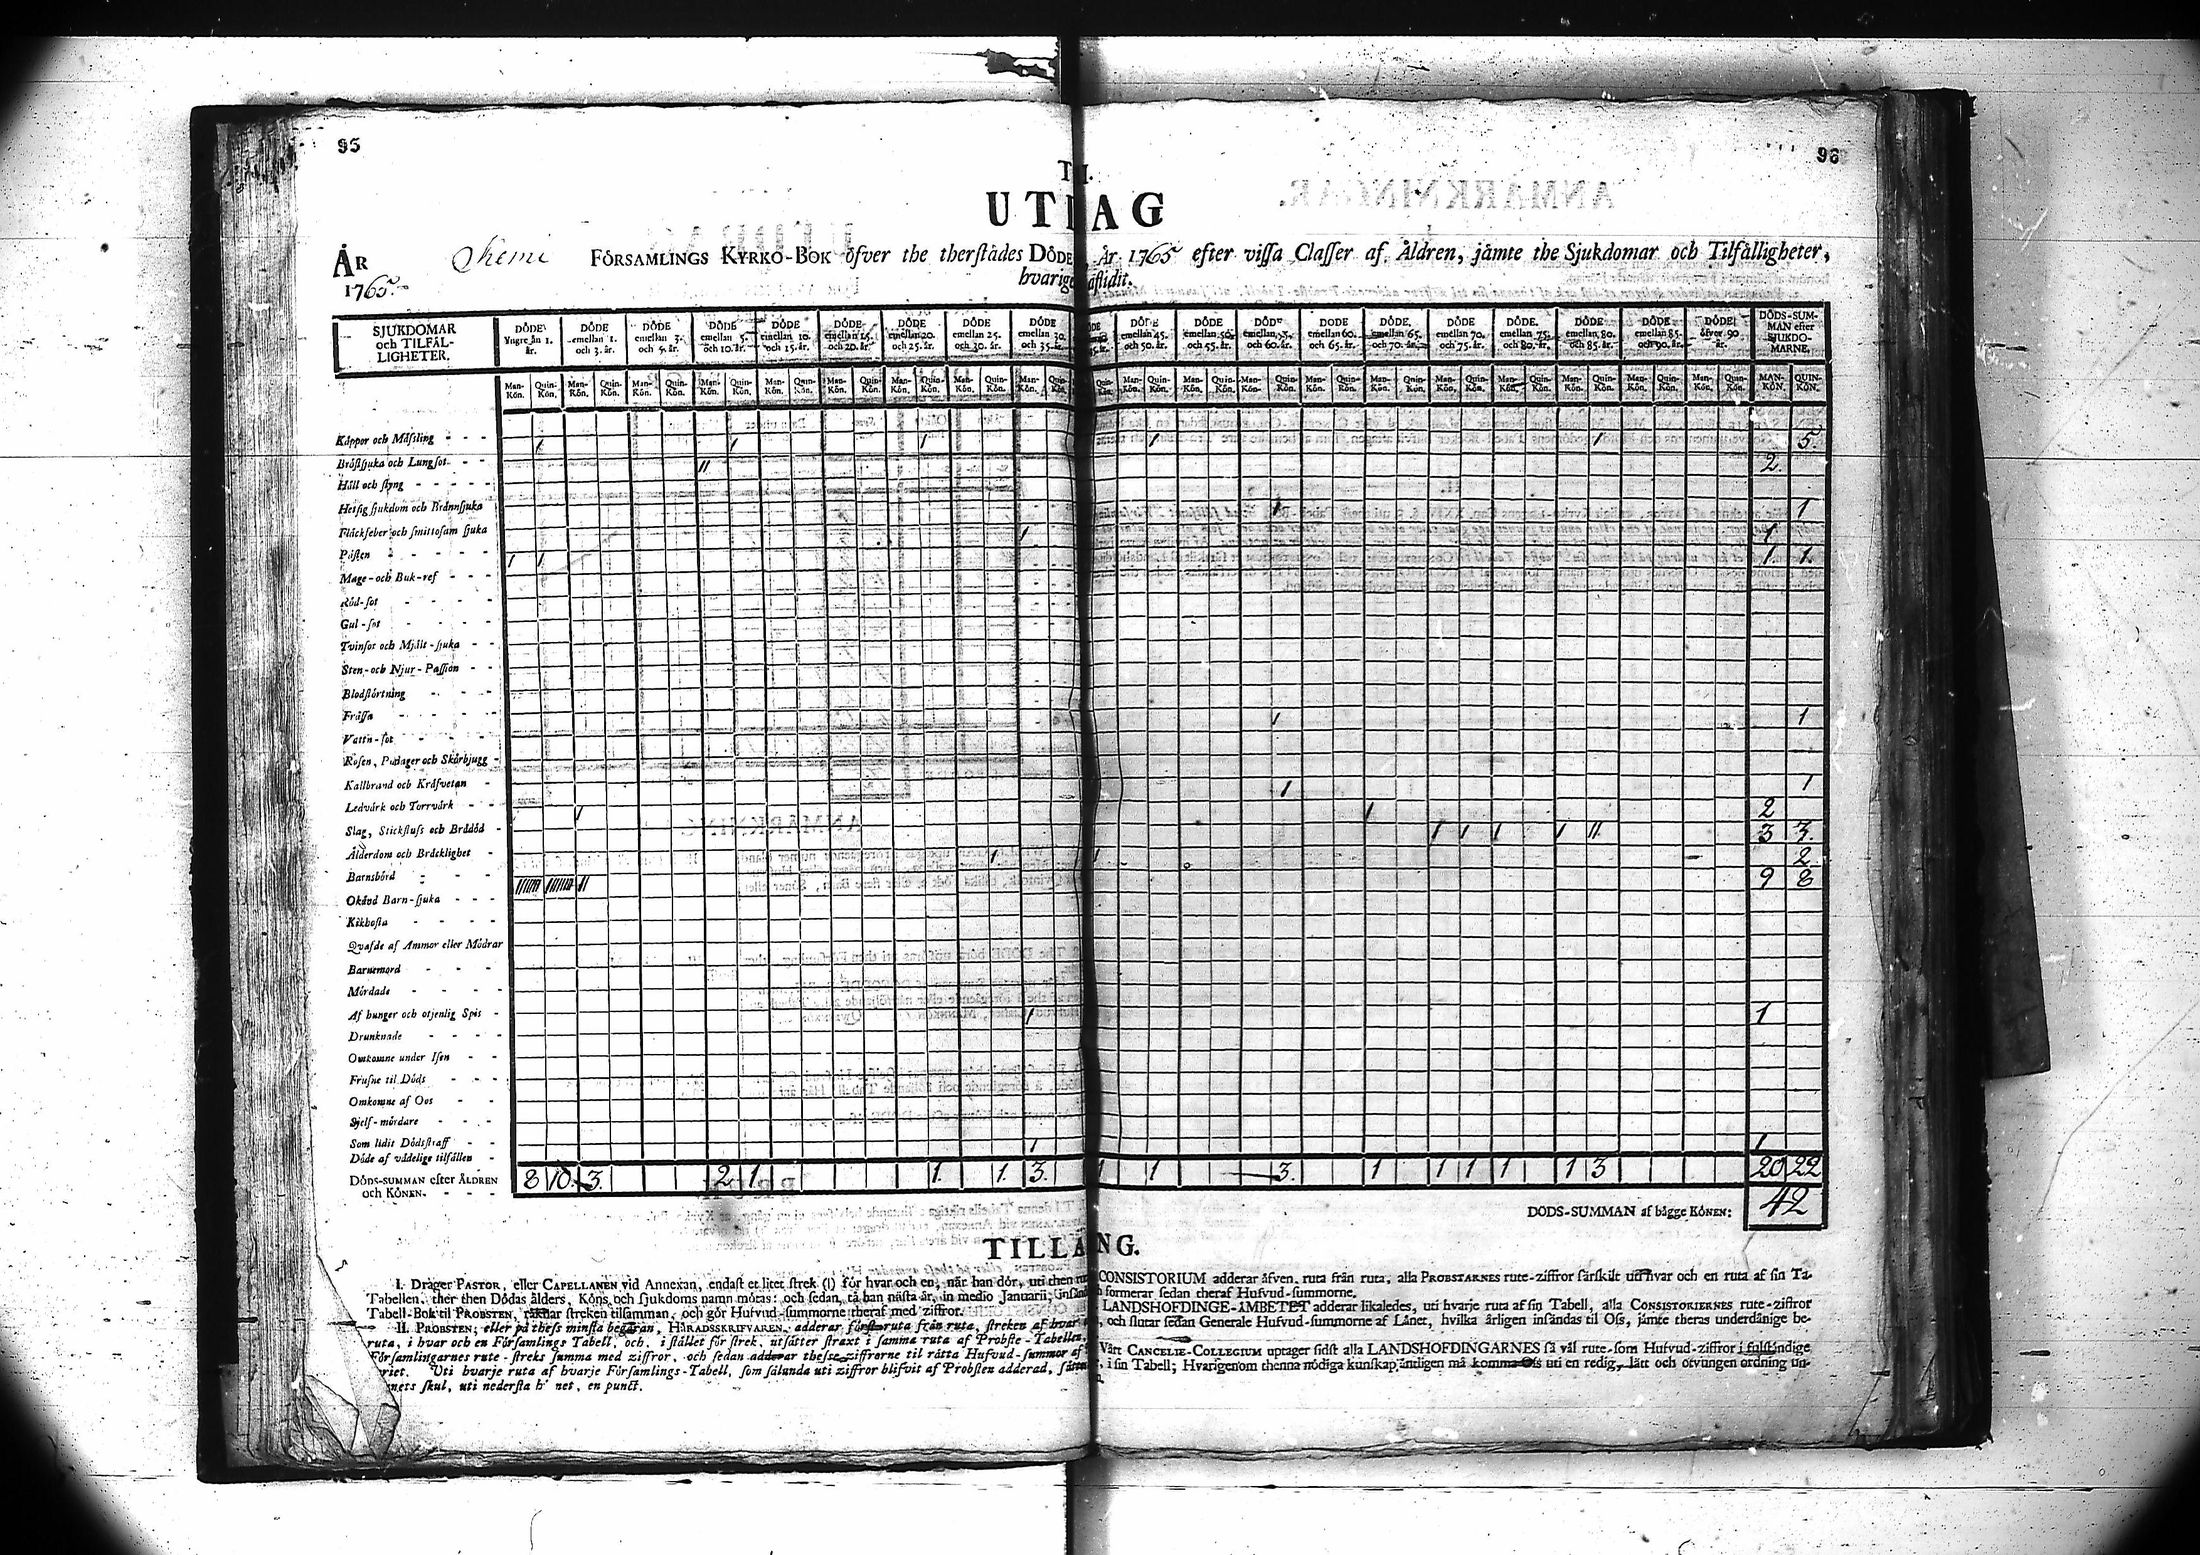 95
96
UT AG
ÅR Kemi FÖRSAMLINGS KYRKO-BOK öfver the therstädes DÖDE, År 1765 efter vissa Classer af Åldren, jämte the Sjukdomar och Tilfälligheter,
1765. hvarige åstidit.
SJUKDOMAR och TILFÄL-LIGHETER.
DÖDE Yngre än 1. år.
DÖDE emellan 1. och 3. år.
DÖDE emellan 3. och 5. år.
DÖDE emellan 5. och 10. år.
DÖDE emellan 10. och 15. år.
DÖDE emellan 15. och 20. år.
DÖDE emellan 20. och 25. år.
DÖDE emellan 25. och 30. år.
DÖDE emellan 30. och 35. år.
DÖDE emellan 45. och 50. år.
DÖDE emellan 50. och 55. år.
DÖDE emellan 55. och 60. år.
DÖDE emellan 60. och 65. år.
DÖDE. emellan 65. och 70. år.
DÖDE emellan 70. och 75. år.
DÖDE. emellan 75. och 80. år.
DÖDE emellan 80. och 85. år.
DÖDE emellan 85. och 90. år.
DÖDE öfver 90. år.
DÖDS-SUM-MAN efter SJUKDO-MARNE.
Man-Kön. Quin-Kön. Man-Kön. Quin-Kön. Man-Kön. Quin-Kön. Man-Kön. Quin-Kön. Man-Kön. Quin-Kön. Man-Kön. Quin-Kön. Man-Kön. Quin-Kön. Man-Kön. Quin-Kön. Man-Kön. Quin-Kön. Quin-Kön. Man-Kön. Quin-Kön. Man-Kön. Quin-Kön. Man-Kön. Quin-Kön. Man-Kön. Quin-Kön. Man-Kön. Quin-Kön. Man-Kön. Quin-Kön. Man-Kön. Quin-Kön. Man-Kön. Quin-Kön. Man-Kön. Quin-Kön. Man-Kön. Quin-Kön. MAN-KÖN. QUIN-KÖN.
Koppor och Mässling - - - 1 1 1 1 1 5.
Bröstsjuka och Lungsot - - 11 2.
Håll och styng - - - - -
Hetsig sjukdom och Brännsjuka 1 1
Fläckfeber och smittosam sjuka 1 1
Pästen - - - - - 1 1 1. 1.
Mage- och Buk-ref - - -
Röd-sot - - - -
Gul-sot - - - -
Tvinsot och Mjält-sjuka - -
Sten- och Njur-Passion - -
Blodstörtning - - -
Frässa - - - - 1 1
Vattn-sot - - - -
Rosen, Podager och Skörbjugg -
Kallbrand och Kräfvetan - 1 1
Ledvärk och Torrvärk - - 1 1 2
Slag, Stickfluss och Brådöd - 1 1 1 1 11 3 3.
Ålderdom och Bräcklighet - 1 1 2
Barnsbörd - - - 9 8
Okänd Barn-sjuka - - -
Kikhosta - - - -
Qvafde af Ammor eller Mödrar
Barnemord - - -
Mördade - - - -
Af hunger och otjenlig Spis - 1 1
Drunknade - - - -
Omkomne under Isen - -
Frusne til Döds - - -
Omkomne af Oos - -
Sjelf-mördare - - -
Som lidit Dödsstraff - - 1 1
Döde af vådelige tilfällen -
DÖDS-SUMMAN efter ÅLDREN och KÖNEN. - - - 8 10. 3. 2 1 1. 1. 3. 1 1 3. 1 1 1 1 1 3 20 22
DÖDS-SUMMAN af bägge KÖNEN: 42
TILLÄ NG.
I. Dräger PASTOR, eller CAPELLANEN vid Annexan, endast et litet strek (1) för hvar och en, när han dör, uti then
Tabellen, ther then Dödas ålders, Köns och sjukdoms namn mötas: och sedan, tå han nästa år, in medio Januarii,
Tabell-Bok til PROBSTEN, räknar streken tilsamman, och gör Hufvud-summorne theraf med ziffror.
II. PROBSTEN, eller på thess minsta begäran, HÄRADSSKRIFVAREN, adderar först ruta från ruta, streken af hvar
ruta, i hvar och en Församlings Tabell, och, i stället för strek, utsätter straxt i samma ruta af Probste-Tabellen,
Församlingarnes rute-streks summa med ziffror, och sedan adderar thesse ziffrorne til rätta Hufvud-summor af
riet. Uti hvarje ruta af hvarje Församlings-Tabell, som sålunda uti ziffror blifvit af Probsten adderad,
nets skul, uti nedersta h net, en punct.
CONSISTORIUM adderar äfven, ruta från ruta, alla PROBSTARNES rute-ziffror särskilt uti hvar och en ruta af sin Ta-
formerar sedan theraf Hufvud-summorne.
LANDSHÖFDINGE-ÄMBETET adderar likaledes, uti hvarje ruta af sin Tabell, alla CONSISTORIERNES rute-ziffror
, och slutar sedan Generale Hufvud-summorne af Länet, hvilka årligen insändas til Oss, jämte theras underdånige be-
Vårt CANCELIE-COLLEGIUM uptager sidst alla LANDSHÖFDINGARNES så väl rute- som Hufvud-ziffror i fulständige
, i sin Tabell; Hvarigenom thenna nödiga kunskap äntligen må komma Oss uti en redig, lätt och otvungen ordning un-